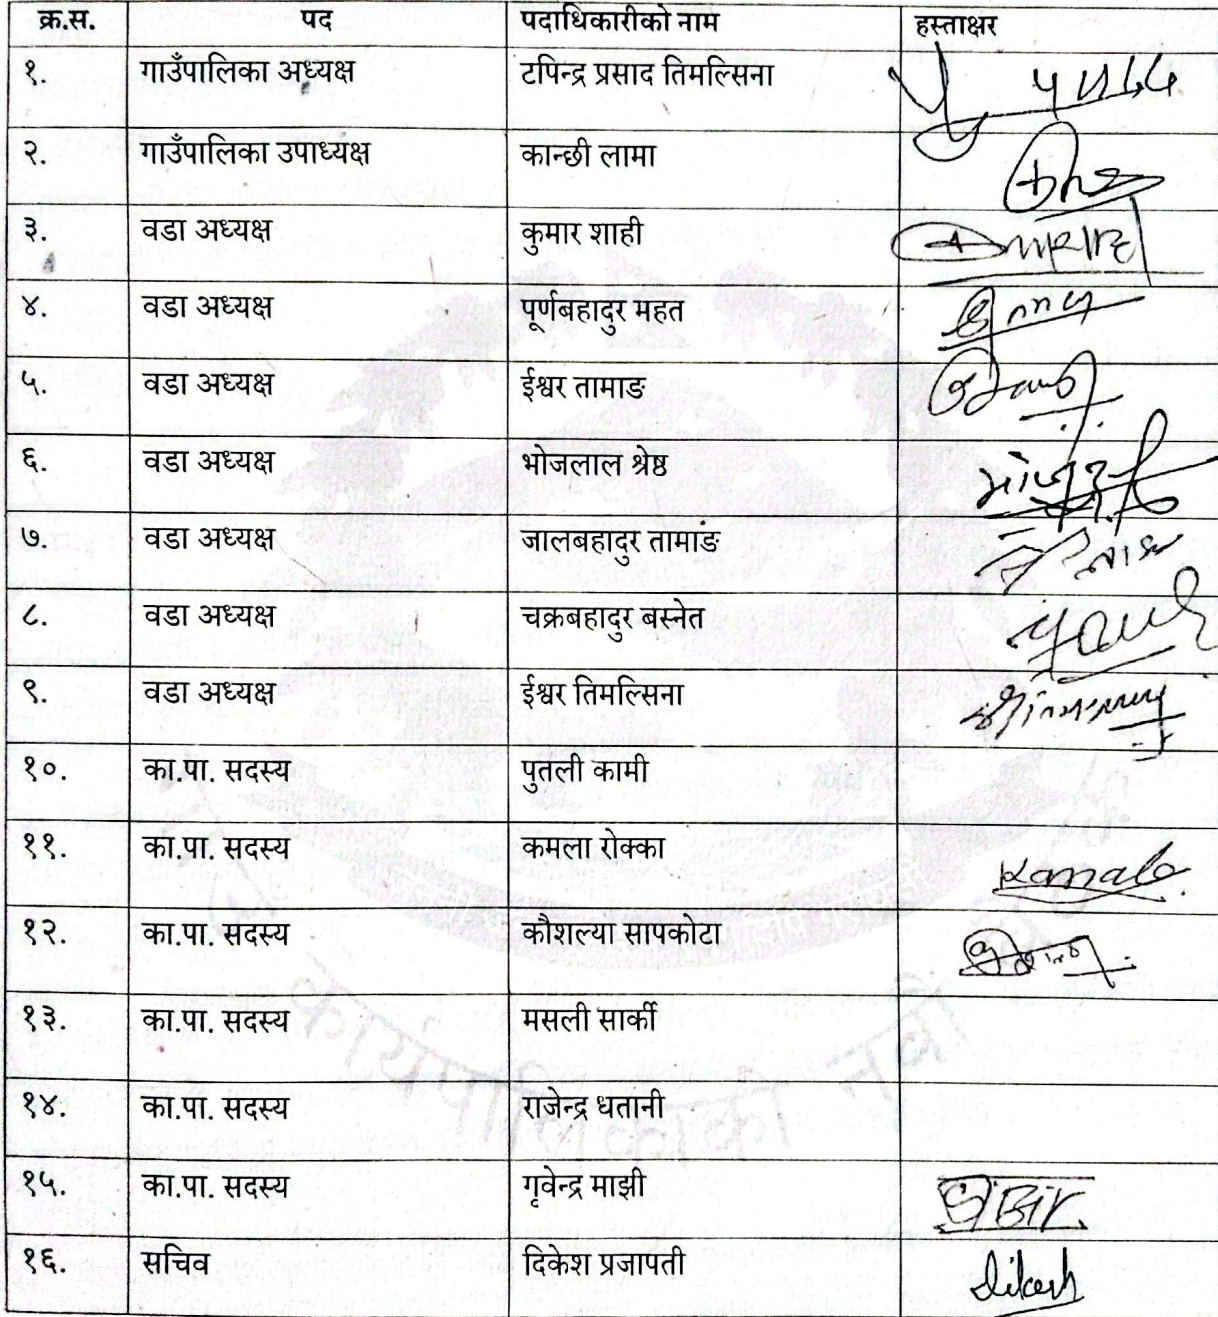 क्र.स. पद पदाधिकारीको नाम हस्ताक्षर
१. गाउँपालिका अध्यक्ष टपिन्द्र प्रसाद तिमल्सिना
२. गाउँपालिका उपाध्यक्ष कान्छी लामा
३. वडा अध्यक्ष कुमार शाही
४. वडा अध्यक्ष पूर्णबहादुर महत
५. वडा अध्यक्ष ईश्वर तामाङ
६. वडा अध्यक्ष भोजलाल श्रेष्ठ
७. वडा अध्यक्ष जालबहादुर तामांङ
८. वडा अध्यक्ष चक्रबहादुर बस्नेत
९. वडा अध्यक्ष ईश्वर तिमल्सिना
१०. का.पा. सदस्य पुतली कामी
११. का.पा. सदस्य कमला रोक्का Kamala
१२. का.पा. सदस्य कौशल्या सापकोटा
१३. का.पा. सदस्य मसली सार्की
१४. का.पा. सदस्य राजेन्द्र धतानी
१५. का.पा. सदस्य गृवेन्द्र माझी
१६. सचिव दिकेश प्रजापती Dikesh
कार्यपालिकाको